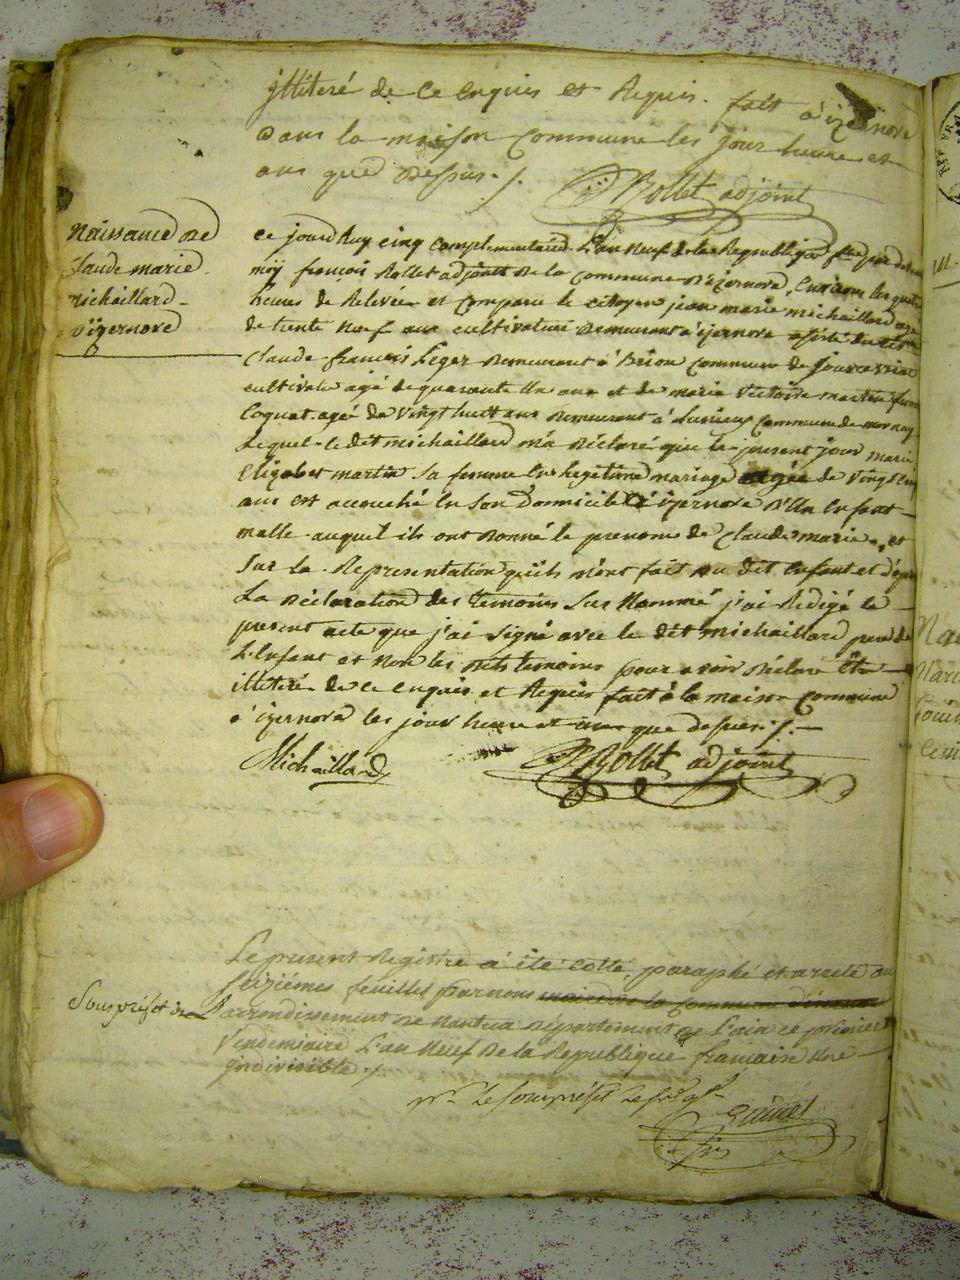 illiteré de ce enquis et Requis. fait à izernore
dans la maison Commune les jour heure et
ans que Dessus ./.
Rollet adjoint
Naissance De
Claude marie
michaillard
d'izernore
ce jourd'huy cinq Complementaire L'an Neuf de la Republique par devant
moÿ françois Rollet adjoint de la Commune D'izernore, Environ les quatre
heures de Relevée et Comparu le citoyen jean marie michaillard agé
de trente Neuf ans cultivateur Demeurant à izernore assisté de
Claude françois Leger Demeurant à Brion Commune de
cultivateur agé de quarante Un ans et de marie Victoire martin femme
Coquet agé de Vingt huit ans Demeurant à Commune de mornay
Lequel le dit michaillard m'a Déclaré que le present jour marie
Elizabet martin sa femme En Legitime mariage agée de Vingt cinq
ans est accouché En Son Domicile à izernore D'Un Enfant
malle auquel ils ont Donné le prenom de Claude marie, et
Sur la Representation qu'ils m'ont fait du dit Enfant et d'après
La Déclaration des temoins Sus Nommé j'ai Redigé le
present acte que j'ai Signé avec le dit michaillard pere de
L'Enfant et non les dits temoins pour avoir Déclaré Etre
illiteré de ce enquis et Requis fait à la maison Commune
d'izernore les jour heure et ans que dessus ./.
Michaillard
Rollet adjoint
Le present Registre à été cotté, paraphé et areté au
Seiziémes feuillet par nous maire de la Commune
Sous préfet de L'arrondissement de Nantua Département de L'ain ce premier
Vendemiaire L'an Neuf de la Republique francaise Une
indivisible ./.
pr. Le Souspréfet